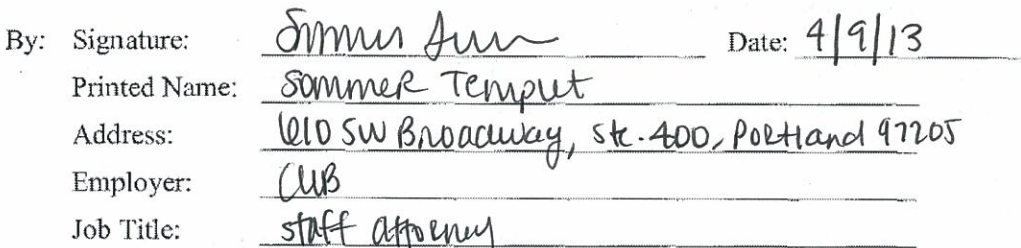 By: Signature: Date: 4/9/13
Printed Name: Sommer Templet
Address: 610 SW Broadway, Ste. 400, Portland 97205
Employer: CUB
Job Title: staff attorney